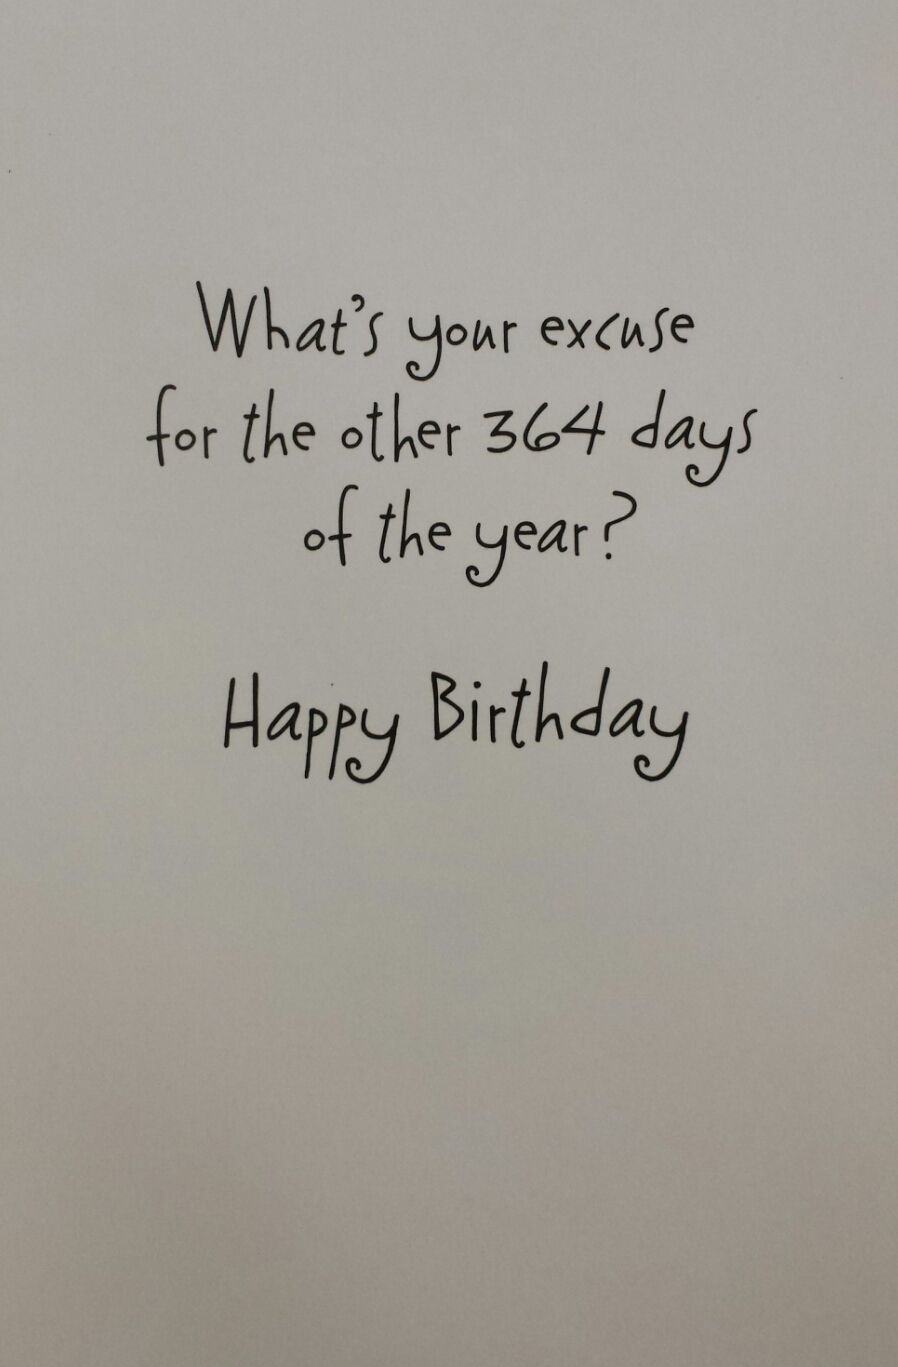 What's your excuse
for the other 364 days
of the year?
Happy Birthday